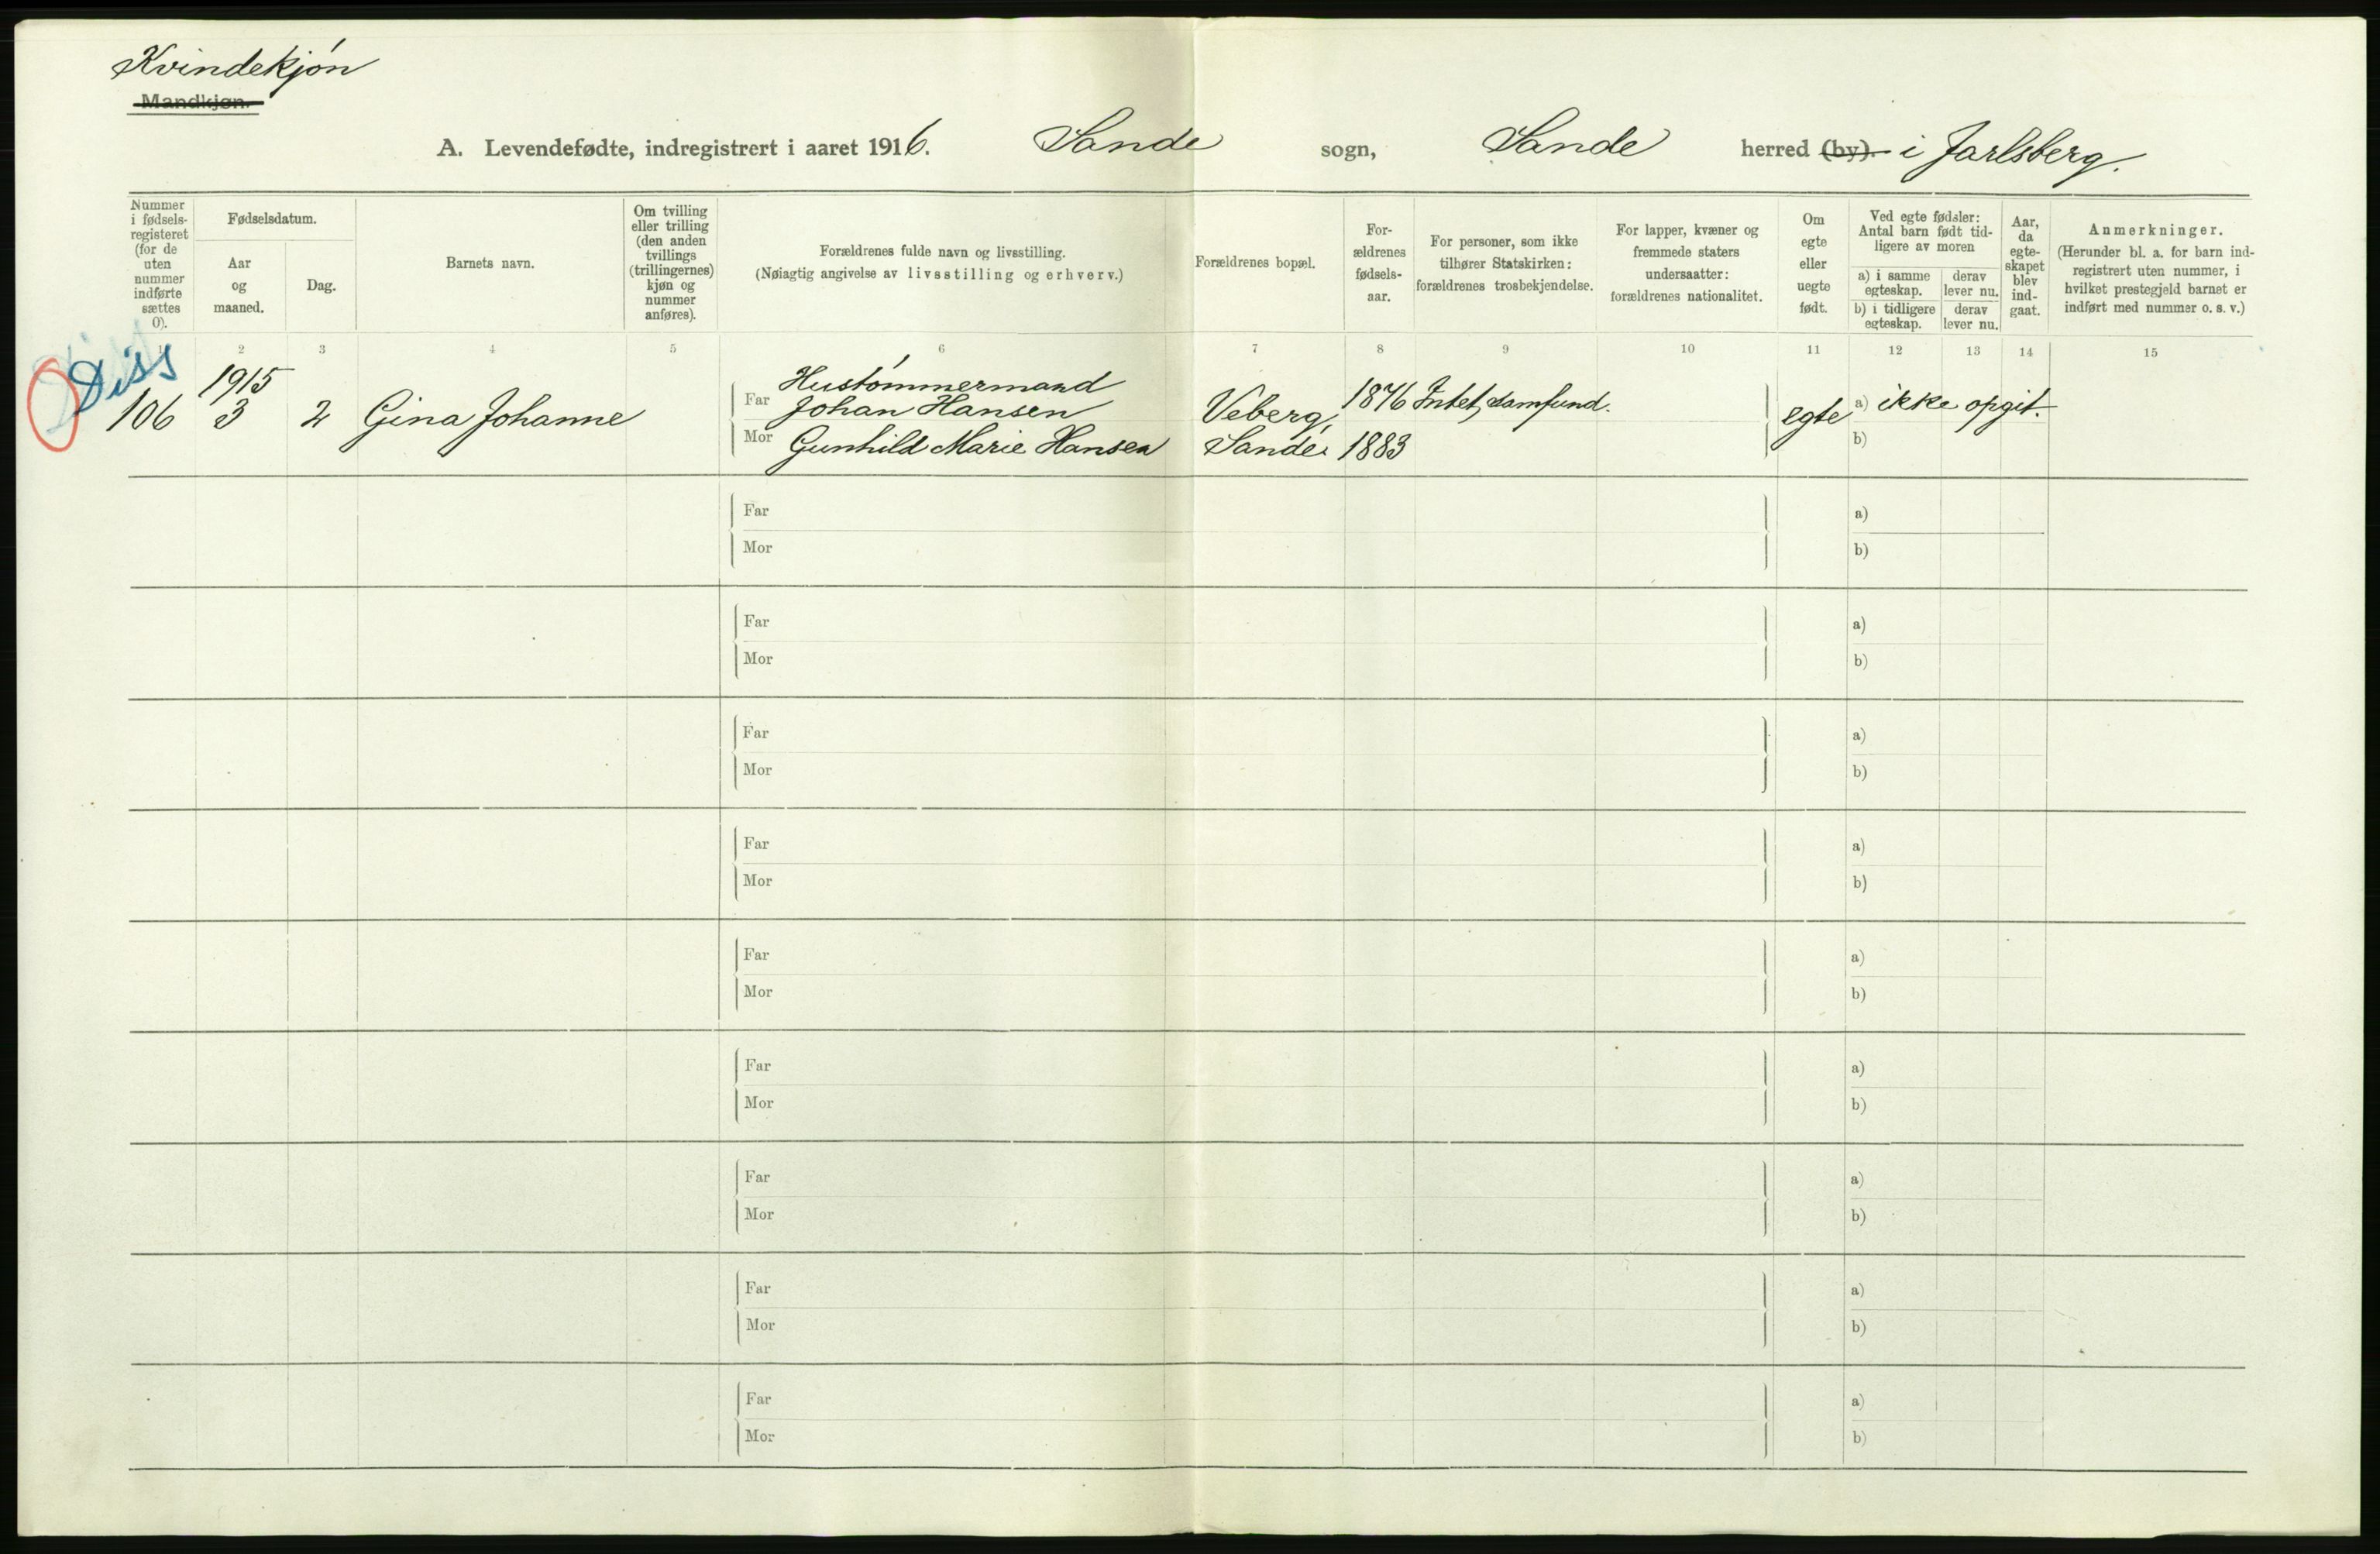 Kvindekjøn
Mandkjøn.
A. Levendefødte, indregistrert i aaret 1916. Sande sogn, Sande herred (by). i Jarlsberg.
Nummer
i fødsels-
registeret
(for de
uten
nummer
indførte
sættes
0).
Fødselsdatum.
Aar
og
maaned.
Dag.
Barnets navn.
Om tvilling
eller trilling
(den anden
tvillings
(trillingernes)
kjøn og
nummer
anføres).
Forældrenes fulde navn og livsstilling.
(Nøiagtig angivelse av livsstilling og erhverv.)
Forældrenes bopæl.
For-
ældrenes
fødsels-
aar.
For personer, som ikke
tilhører Statskirken:
forældrenes trosbekjendelse.
For lapper, kvæner og
fremmede staters
undersaatter:
forældrenes nationalitet.
Om
egte
eller
uegte
født.
Ved egte fødsler:
Antal barn født tid-
ligere av moren
a) i samme
egteskap.
derav
lever nu.
b) i tidligere
egteskap.
derav
lever nu.
Aar,
da
egte-
skapet
blev
ind-
gaat.
Anmerkninger.
(Herunder bl. a. for barn ind-
registrert uten nummer, i
hvilket prestegjeld barnet er
indført med nummer o. s. v.)
1 2 3 4 5 6 7 8 9 10 11 12 13 14 15
Diss
1915
Hustømmermand
106 3 2 Gina Johanne Far Johan Hansen Veberg, 1876 Intet samfund. egte a) ikke opgit.
Mor Gunhild Marie Hansen Sande. 1883 b)
Far a)
Mor b)
Far a)
Mor b)
Far a)
Mor b)
Far a)
Mor b)
Far a)
Mor b)
Far a)
Mor b)
Far a)
Mor b)
Far a)
Mor b)
Far a)
Mor b)